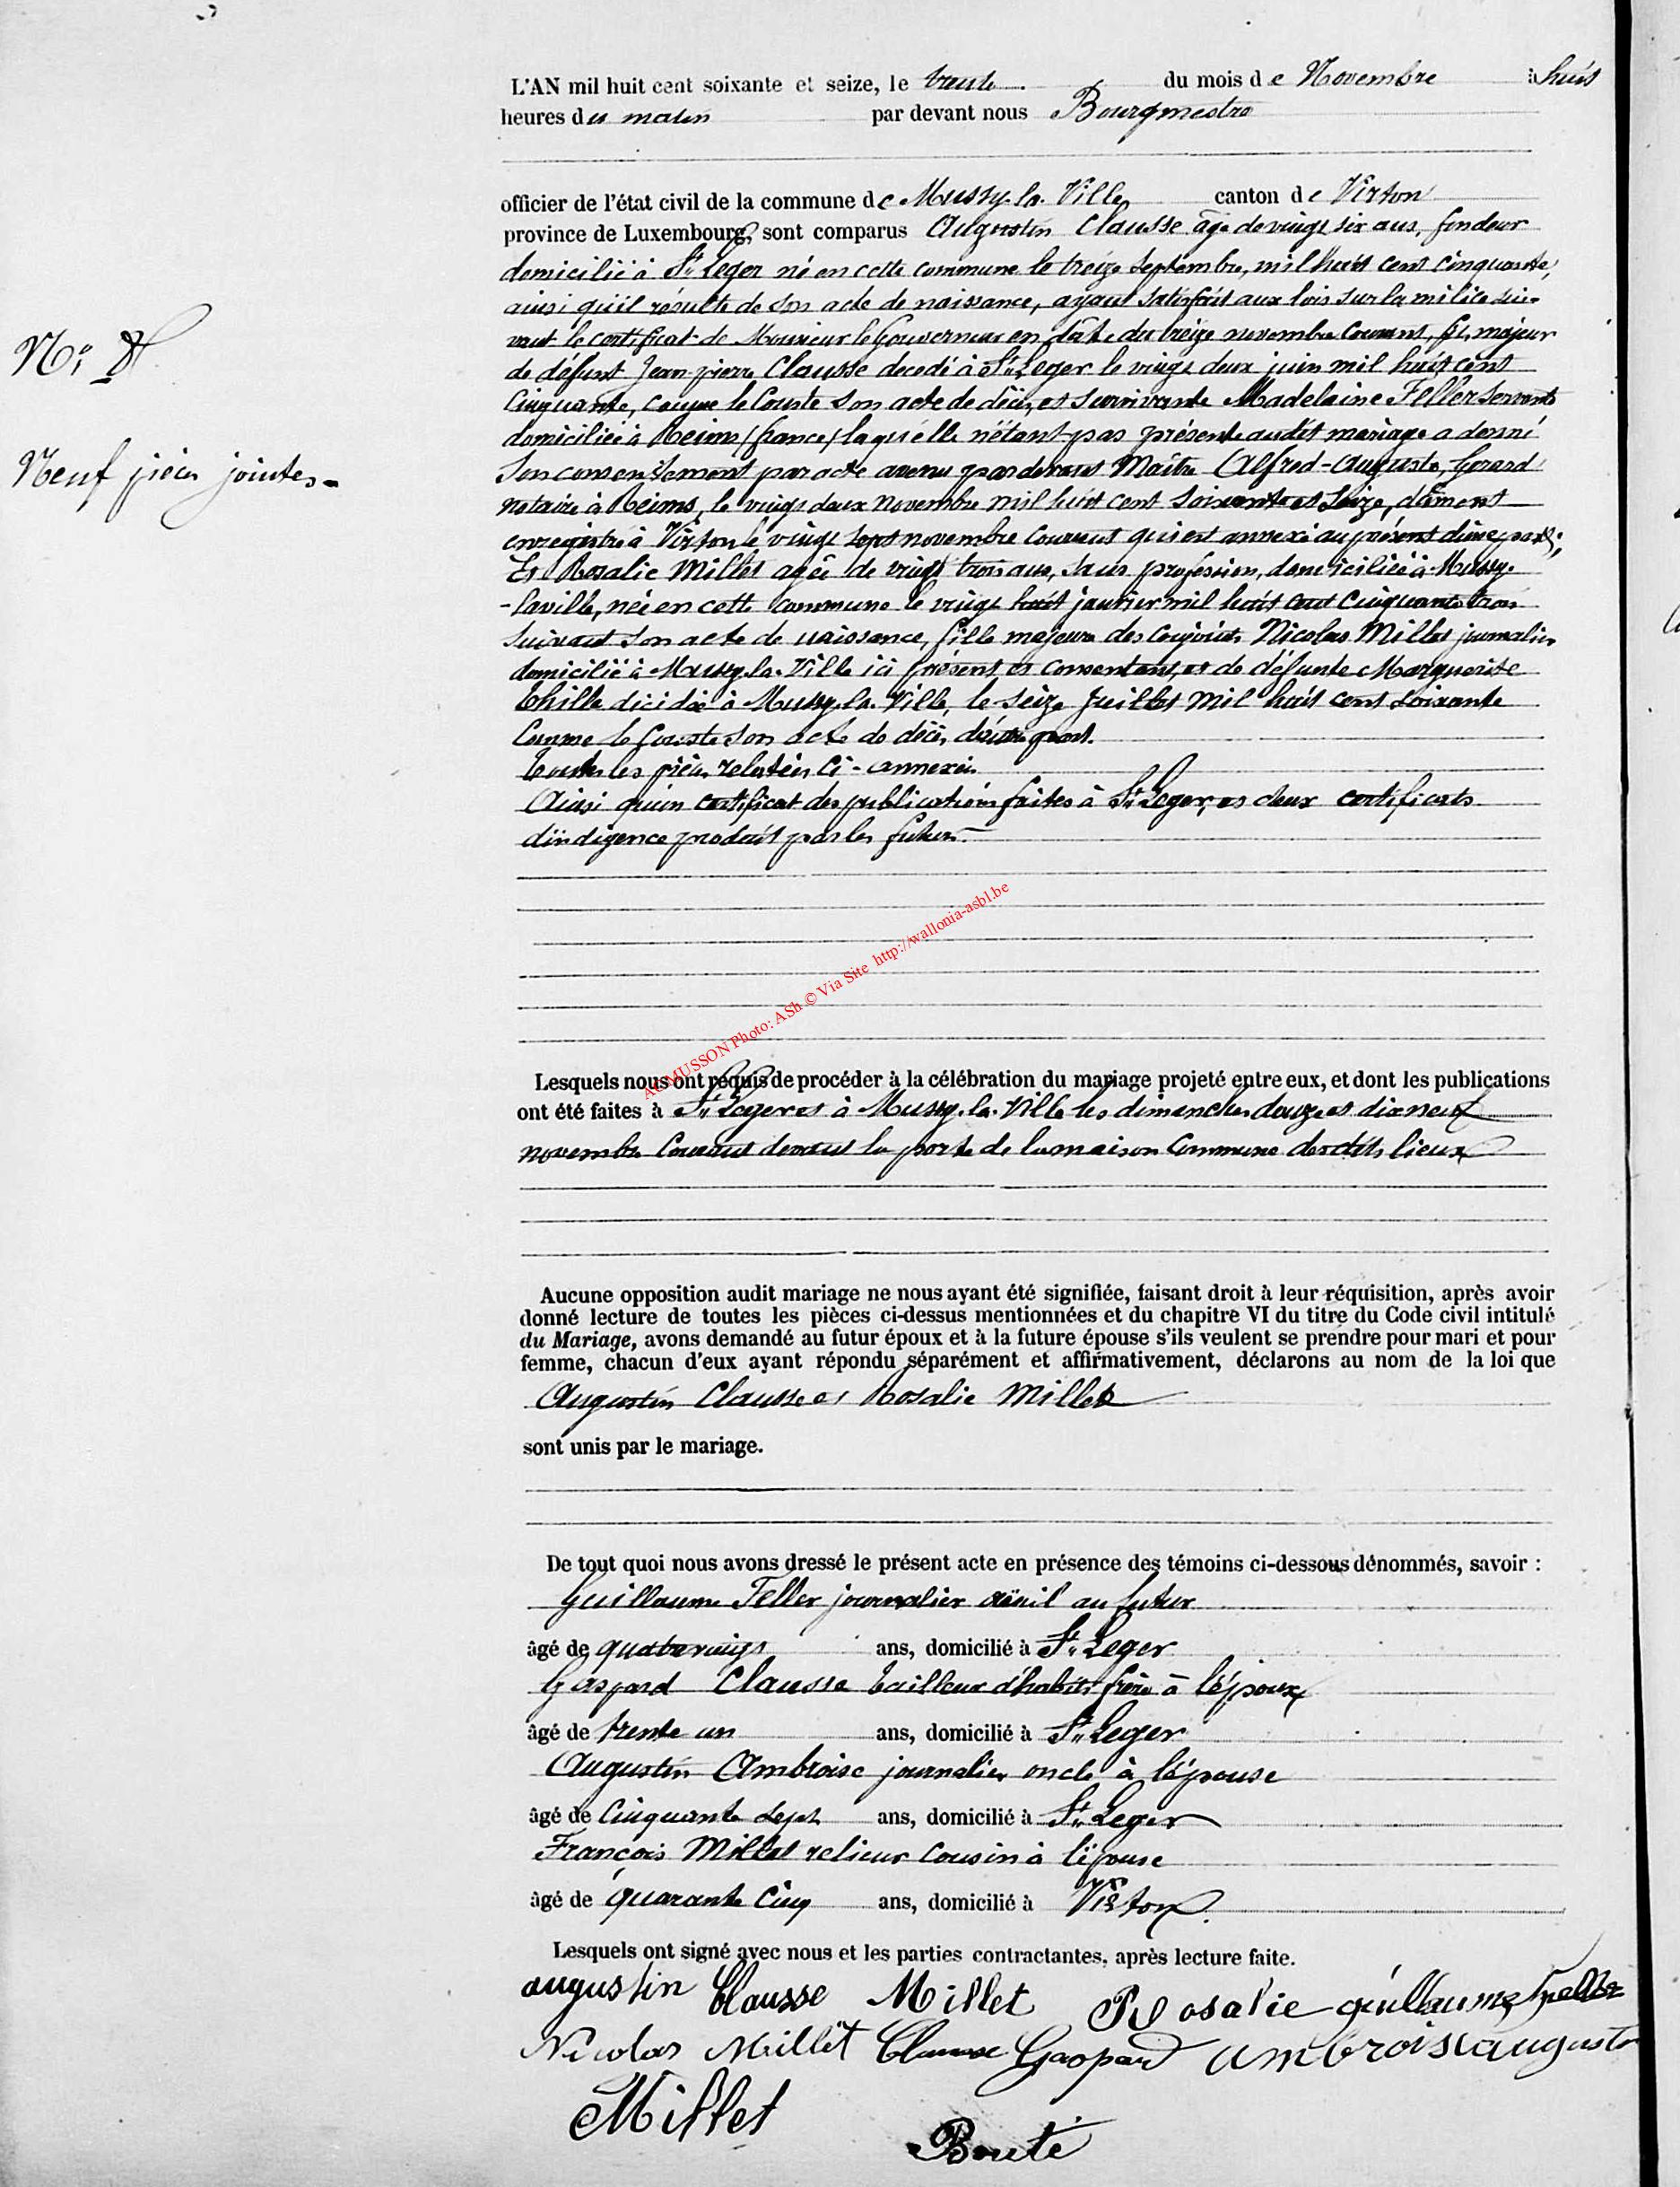 L'AN mil huit cent soixante et seize, le trente du mois de Novembre à huit
heures du matin par devant nous Bourgmestre
officier de l'état civil de la commune de Mussy-la-Ville canton de Virton
province de Luxembourg, sont comparus Augustin Clausse âgé de vingt six ans, fondeur
domicilié à St Leger né en cette commune le treize Septembre, mil huit cent cinquante,
ainsi qu'il résulte de son acte de naissance, ayant satisfait aux lois sur la milice sui-
N° 8
vant le certificat de Monsieur le Gouverneur en date du treize novembre courant, fils majeur
de défunt Jean-pierre Clausse decedé à St Leger le vingt deux juin mil huit cent
Cinquante, comme le Conste son acte de décès, et survivante Madelaine Feller servante
domiciliée à Reims (france) laquelle n'étant pas présente audit mariage a donné
Neuf pièces jointes.
Son consentement par acte avenu par devant Maître Alfred-Auguste, Gerard
notaire à Reims, le vingt deux Novembre mil huit cent soixante et seize, dûment
enregistré à Virton le vingt sept novembre courant qui est annexé au présent d'une part;
Et Rosalie Millet agée de vingt trois ans, sans profession, domiciliée à Mussy-
-laville, née en cette commune le vingt huit janvier mil huit cent cinquante trois
suivant son acte de naissance, fille majeure des conjoints Nicolas Millet journalier
domicilié à Mussy-la-Ville ici présent et consentant, et de défunte Marguerite
Thille décidée à Mussy-la-Ville, le seize Juillet mil huit cent soixante
Comme le Conste son acte de décès, d'autre part.
toutes les pièces relatées Ci-annexées
Ainsi qu'un certificat des publications faites à St Leger, et deux certificats
d'indigence produit par les futurs.
AC MUSSON Photo: ASh © Via Site http://wallonia-asbl.be
Lesquels nous ont requis de procéder à la célébration du mariage projeté entre eux, et dont les publications
ont été faites à St Leger et à Mussy-la-Ville les dimanches douze et dix neuf
novembre Courant devant la porte de la maison Commune desdits lieux
Aucune opposition audit mariage ne nous ayant été signifiée, faisant droit à leur réquisition, après avoir
donné lecture de toutes les pièces ci-dessus mentionnées et du chapitre VI du titre du Code civil intitulé
du Mariage, avons demandé au futur époux et à la future épouse s'ils veulent se prendre pour mari et pour
femme, chacun d'eux ayant répondu séparément et affirmativement, déclarons au nom de la loi que
Augustin Clausse et Rosalie Millet
sont unis par le mariage.
De tout quoi nous avons dressé le présent acte en présence des témoins ci-dessous dénommés, savoir :
Guillaume Feller journalier aïeul au futur
âgé de quatre vingt ans, domicilié à St Leger
Gaspard Clausse tailleur d'habits frère à l'époux
âgé de trente un ans, domicilié à St Leger
Augustin Ambroise journalier oncle à l'épouse
âgé de Cinquante Sept ans, domicilié à St Leger
François Millet relieur Cousin à l'épouse
âgé de quarante Cinq ans, domicilié à Virton.
Lesquels ont signé avec nous et les parties contractantes, après lecture faite.
augustin Clausse Millet Rosalie guillaume feller
Nicolas Millet Clausse Gaspard ambroise augustin
Millet
Bouté